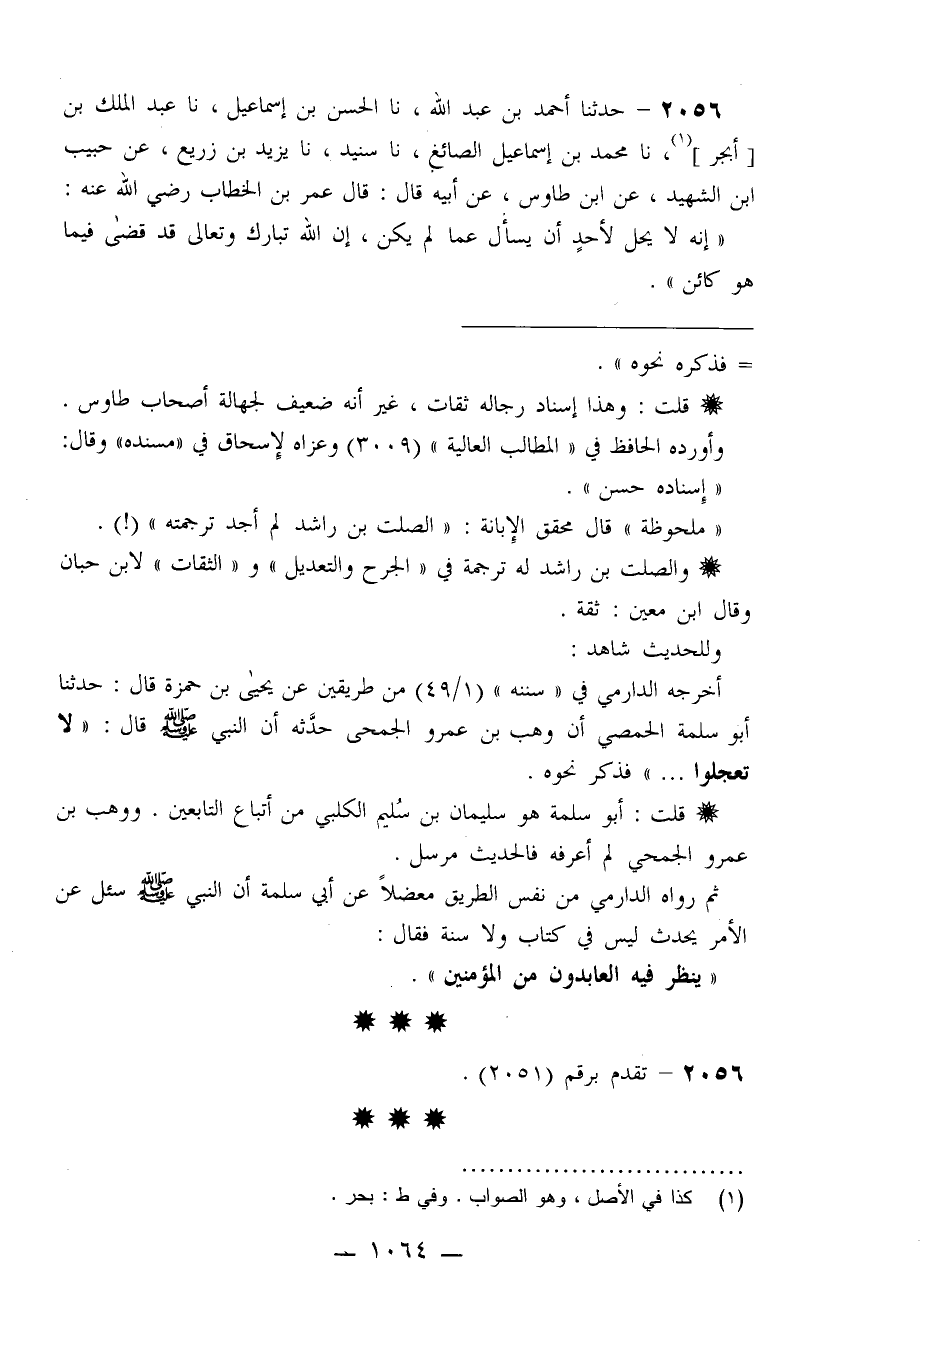 ٢٠٥٦ – حدثنا أحمد بن عبد الله ، نا الحسن بن إسماعيل ، نا عبد الملك بن
[ أبجر ](١)، نا محمد بن إسماعيل الصائغ ، نا سنيد ، نا يزيد بن زريع ، عن حبيب
ابن الشهيد ، عن ابن طاوس ، عن أبيه قال : قال عمر بن الخطاب رضي الله عنه :
« إنه لا يحل لأحدٍ أن يسأل عما لم يكن ، إن الله تبارك وتعالى قد قضىٰ فيما
هو كائن » .
= فذكره نحوه » .
✸ قلت : وهذا إسناد رجاله ثقات ، غير أنه ضعيف لجهالة أصحاب طاوس .
وأورده الحافظ في « المطالب العالية » (٣٠٠٩) وعزاه لإسحاق في «مسنده» وقال:
« إسناده حسن » .
« ملحوظة » قال محقق الإبانة : « الصلت بن راشد لم أجد ترجمته » (!) .
✸ والصلت بن راشد له ترجمة في « الجرح والتعديل » و « الثقات » لابن حبان
وقال ابن معين : ثقة .
وللحديث شاهد :
أخرجه الدارمي في « سننه » (٤٩/١) من طريقين عن يحيىٰ بن حمزة قال : حدثنا
أبو سلمة الحمصي أن وهب بن عمرو الجمحى حدَّثه أن النبي ﷺ قال : « لا
تعجلوا ... » فذكر نحوه .
✸ قلت : أبو سلمة هو سليمان بن سُليم الكلبي من أتباع التابعين . ووهب بن
عمرو الجمحي لم أعرفه فالحديث مرسل .
ثم رواه الدارمي من نفس الطريق معضلاً عن أبي سلمة أن النبي ﷺ سئل عن
الأمر يحدث ليس في كتاب ولا سنة فقال :
« ينظر فيه العابدون من المؤمنين » .
✸ ✸ ✸
٢٠٥٦ – تقدم برقم (٢٠٥١) .
✸ ✸ ✸
(١) كذا في الأصل ، وهو الصواب . وفي ط : بحر .
– ١٠٦٤ –